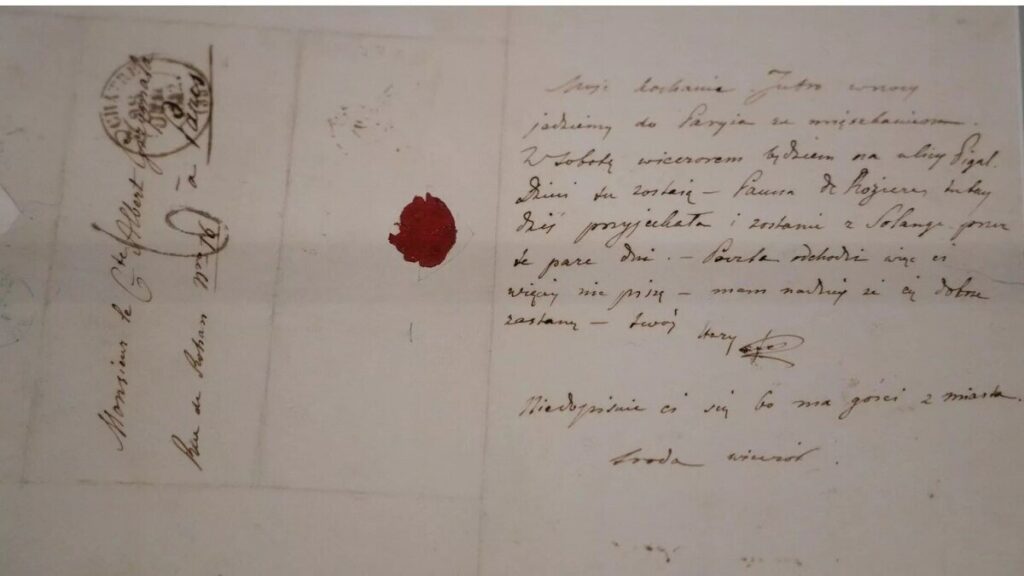 Moje kochanie Jutro w nocy
jedziemy do Paryża ze mięszkaniem.
W Sobotę wieczorem będziem na ulicy Pigal.
Dzieci tu zostają – Panna de Rozieres tutay
dziś przyjechała i zostanie z Solange przez
te parę dni. – Poczta odchodzi więc ci
więcéj nie piszę – mam nadzieję że cię dobrze
zastanę – twój
stary
Niedopisuie ci się bo ma gości z miasta.
Sroda wieczór.
Monsieur le Cte Albert Grzymała
Rue de Rohan No 16 à Paris